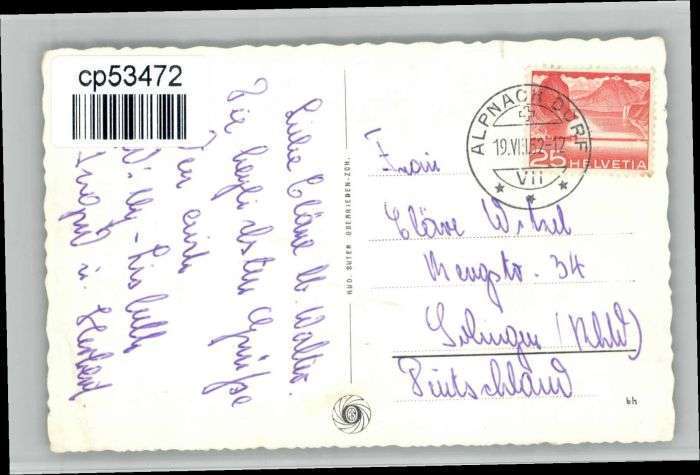 cp53472
Liebe Cläre u. Walter.
Die herzlichsten Grüße
von euch
Willy - Lisbeth
u. Herbert
RUD. SUTER OBERRIEDEN-ZCH.
ALPNACH DORF
19.VIII.52-12
VII
25 HELVETIA
Frau
Cläre Witzel
Mengstr. 34
Solingen (Rhld)
Deutschland